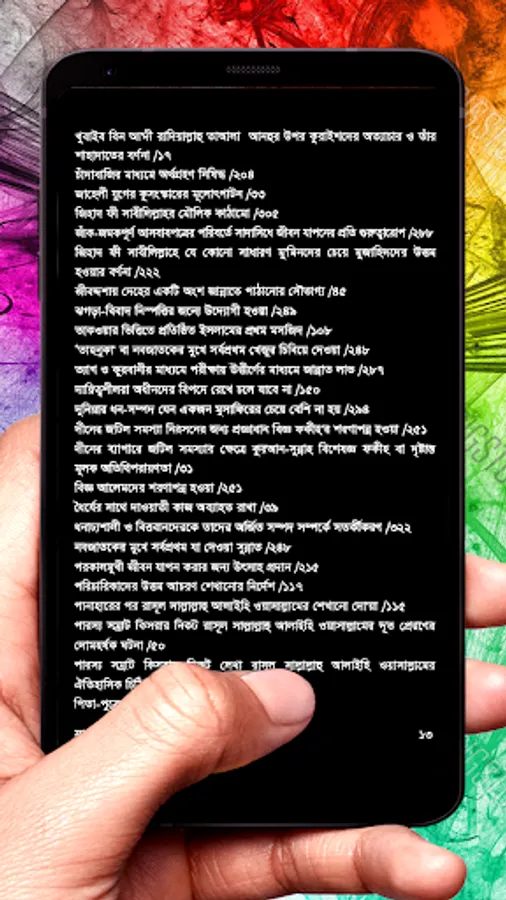 খুবাইব বিন আদী রাদিয়াল্লাহু তাআলা আনহুর উপর কুরাইশদের অত্যাচার ও তাঁর
শাহাদাতের বর্ণনা /১৭
চাঁদাবাজির মাধ্যমে অর্থগ্রহণ নিষিদ্ধ /২০৪
জাহেলী যুগের কুসংস্কারের মূলোৎপাটন /৩৩
জিহাদ ফী সাবীলিল্লাহর মৌলিক কাঠামো /৩০৫
জাঁক-জমকপূর্ণ আসবাবপত্রের পরিবর্তে সাদাসিধে জীবন যাপনের প্রতি গুরুত্বারোপ /২৮৮
জিহাদ ফী সাবীলিল্লাহে যে কোনো সাধারণ মুমিনদের চেয়ে মুজাহিদদের উত্তম
হওয়ার বর্ণনা /২২২
জীবদ্দশায় দেহের একটি অংশ জান্নাতে পাঠানোর সৌভাগ্য /৪৫
ঝগড়া-বিবাদ নিষ্পত্তির জন্যে উদ্যোগী হওয়া /২৪৯
তাকওয়ার ভিত্তিতে প্রতিষ্ঠিত ইসলামের প্রথম মসজিদ /১০৮
'তাহনুকা' বা নবজাতকের মুখে সর্বপ্রথম খেজুর চিবিয়ে দেওয়া /২৪৮
ত্যাগ ও কুরবানীর মাধ্যমে পরীক্ষায় উত্তীর্ণের মাধ্যমে জান্নাত লাভ /২৮৭
দায়িত্বশীলরা অধীনদের বিপদে রেখে চলে যাবে না /১৫০
দুনিয়ার ধন-সম্পদ যেন একজন মুসাফিরের চেয়ে বেশি না হয় /২৯৪
দ্বীনের জটিল সমস্যা নিরসনের জন্য প্রজ্ঞাবান বিজ্ঞ ফকীহ'র শরণাপন্ন হওয়া /২৫১
দ্বীনের ব্যাপারে জটিল সমস্যার ক্ষেত্রে কুরআন-সুন্নাহ বিশেষজ্ঞ ফকীহ বা দৃষ্টান্ত
মূলক অতিথিপরায়ণতা /৩১
বিজ্ঞ আলেমদের শরণাপন্ন হওয়া /২৫১
ধৈর্যের সাথে দাওয়াতী কাজ অব্যাহত রাখা /৩৯
ধনাঢ্যশালী ও বিত্তবানদেরকে তাদের অর্জিত সম্পদ সম্পর্কে সতর্কীকরণ /৩২২
নবজাতকের মুখে সর্বপ্রথম যা দেওয়া সুন্নাত /২৪৮
পরকালমুখী জীবন যাপন করার জন্য উৎসাহ প্রদান /২১৫
পরিচারিকাদের উত্তম আচরণ শেখানোর নির্দেশ /১১৭
পানাহারের পর রাসূল সাল্লাল্লাহু আলাইহি ওয়াসাল্লামের শেখানো দোয়া /১১৫
পারস্য সম্রাট কিসরার নিকট রাসূল সাল্লাল্লাহু আলাইহি ওয়াসাল্লামের দূত প্রেরণের
লোমহর্ষক ঘটনা /৫০
পারস্য সম্রাট নিকট লেখা রাসূল সাল্লাল্লাহু আলাইহি ওয়াসাল্লামের
ঐতিহাসিক
১৩